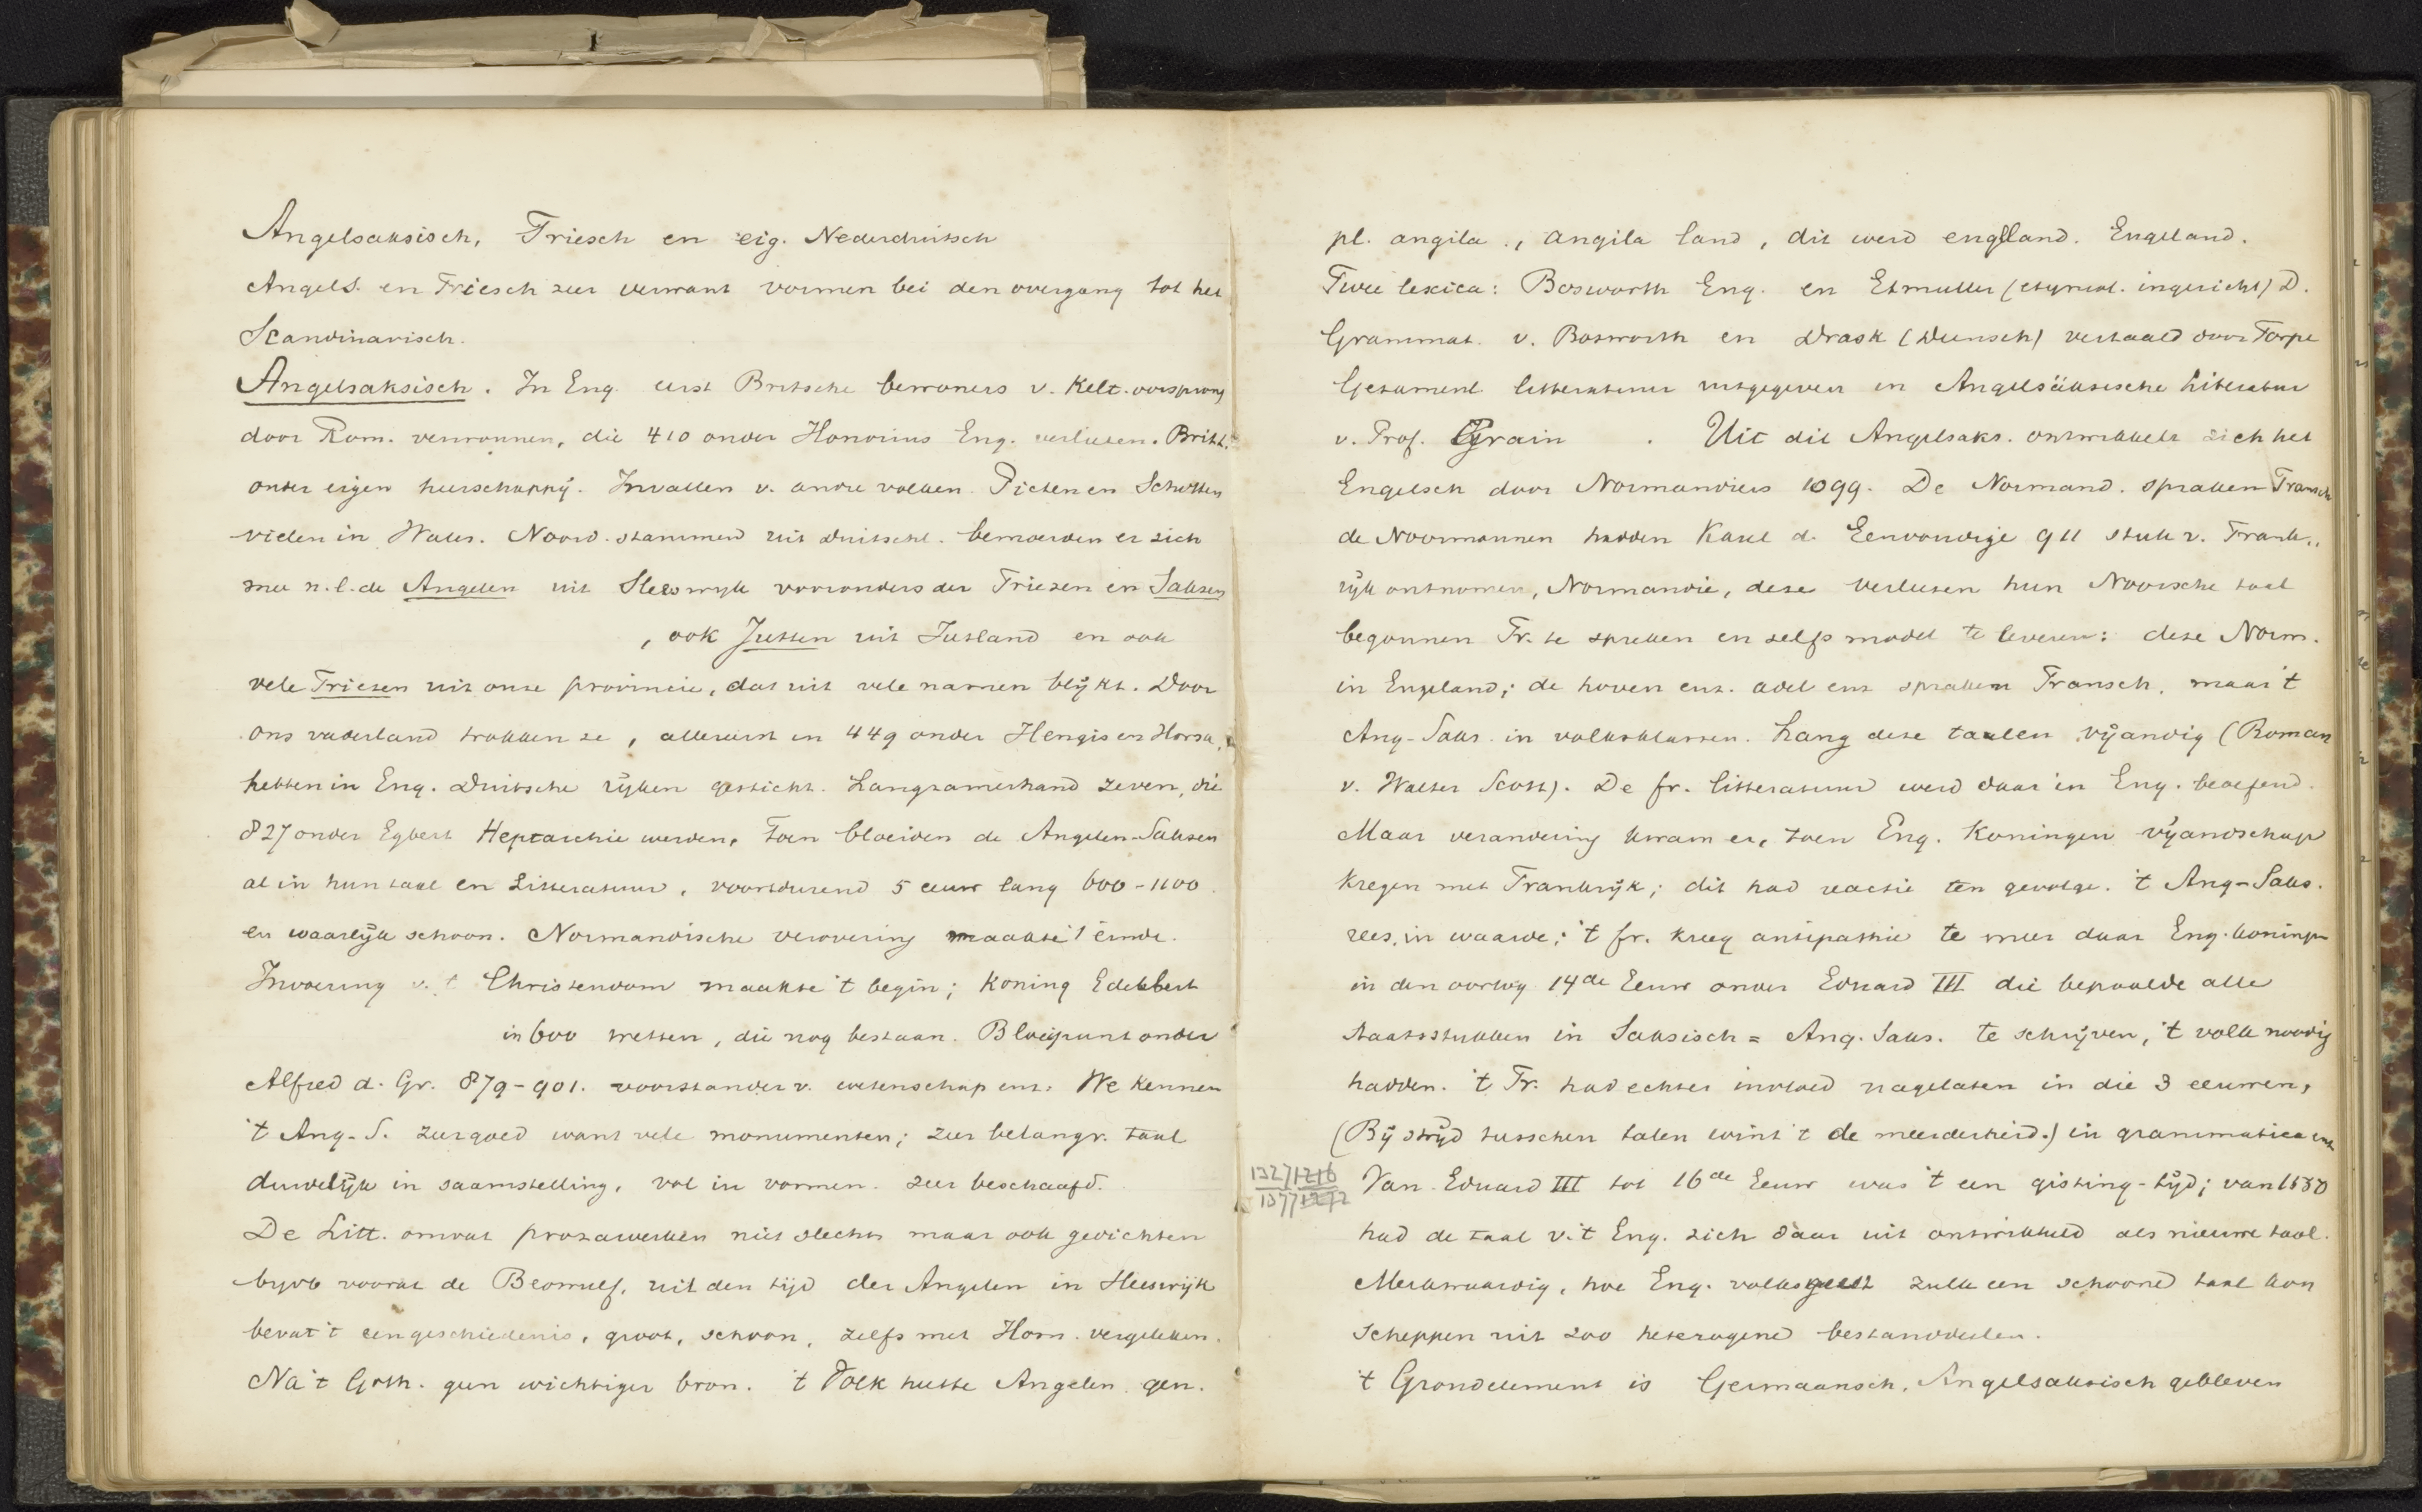 Angelsaksisch, Friesch en eig. Nederduitsch
Angels. en Friesch zeer verwant vormen bei den overgang tot het
Scandinavisch.
Angelsaksisch. In Eng. eerst Britsche bewoners v. Kelt. oorsprong
door Rom. verwonnen, die 410 onder Honorius Eng. verlieten. Britt.
onder eigen heerschappij. Invallen v. andre volken. Picten en Schotten
vielen in Wales. Noord. stammen uit Duitschl. bemoeiden er zich
mee n.l. de Angelen uit Sleeswyk vooronders der Friezen en Saksen
, ook Jutten uit Jutland en ook
vele Friezen uit onze provincie, dat uit vele namen blijkt. Door
ons vaderland trokken ze, allereerst in 449 onder Hengis en Horsa,
hebben in Eng. Duitsche rijken gesticht. Langzamerhand zeven, die
827 onder Egbert Heptarchie werden. Toen bloeiden de Angelen-Saksen
al in hun taal en Litteratuur, voortdurend 5 eeuw lang 600-1100.
en waarlijk schoon. Normandische verovering maakte 't einde.
Invoering v. 't Christendom maakte 't begin; Koning Edelbert
in 600 wetten, die nog bestaan. Bloeipunt onder
Alfred d. Gr. 879-901. voorstander v. wetenschap enz. We kennen
't Ang-S. zeer goed want vele monumenten; zeer belangr. taal
duidelijk in saamstelling, vol in vormen. zeer beschaafd.
De Litt. omvat prozawerken niet slechts maar ook gedichten
byvb vooral de Beowulf, uit den tijd der Angelen in Sleeswijk
bevat 't een geschiedenis, groot, schoon, zelfs met Hom. vergeleken.
Na 't Goth. geen wichtiger bron. 't Volk heette Angelen gen.
pl. angila., angila land, dit werd engelland. Engeland.
Twee lexica: Bosworth Eng. en Etmuller (etymol. ingericht) D.
Grammat. v. Bosworth en Drask (Deensch) vertaald door Torpe
Gesament. litteratuur uitgegeven in Angelsäksische Literatur
v. Prof. Grain . Uit dit Angelsaks. ontwikkelt zich het
Engelsch door Normandiers 1099. De Normand. spraken Fransch
de Noormannen hadden Karel d. Eenvoudige 911 stuk v. Frank-
rijk ontnomen, Normandie, deze verlieten hun Noorsche taal
begonnen Fr. te spreken en zelfs model te leveren: deze Norm.
in Engeland; de hoven enz. adel enz spraken Fransch, maar 't
Ang-Saks. in volksklassen. Lang deze taalen vijandig (Roman
v. Walter Scott). De fr. litteratuur werd daar in Eng. beoefend.
Maar verandering kwam er, toen Eng. Koningen vijandschap
kregen met Frankrijk; dit had reactie ten gevolge. 't Ang-Saks.
rees in waarde; 't fr. kreeg antipathie te meer daar Eng. koningen
in den oorlog 14de Eeuw onder Eduard III die bepaalde alle
staatsstukken in Saksisch = Ang. Saks. te schrijven, 't volk noodig
hadden. 't Fr. had echter invloed nagelaten in die 3 eeuwen,
(Bij strijd tusschen talen wint 't de meerderheid.) in grammatica enz
1327/1216
1377/1272
Van Eduard III tot 16de Eeuw was 't een gisting-tijd; van 1550
had de taal v. 't Eng. zich daar uit ontwikkeld als nieuwe taal.
Merkwaardig, hoe Eng. volksgeest zulk een schoone taal kon
scheppen uit zoo heterogene bestanddeelen.
't Grondelement is Germaansch, Angelsaksisch gebleven